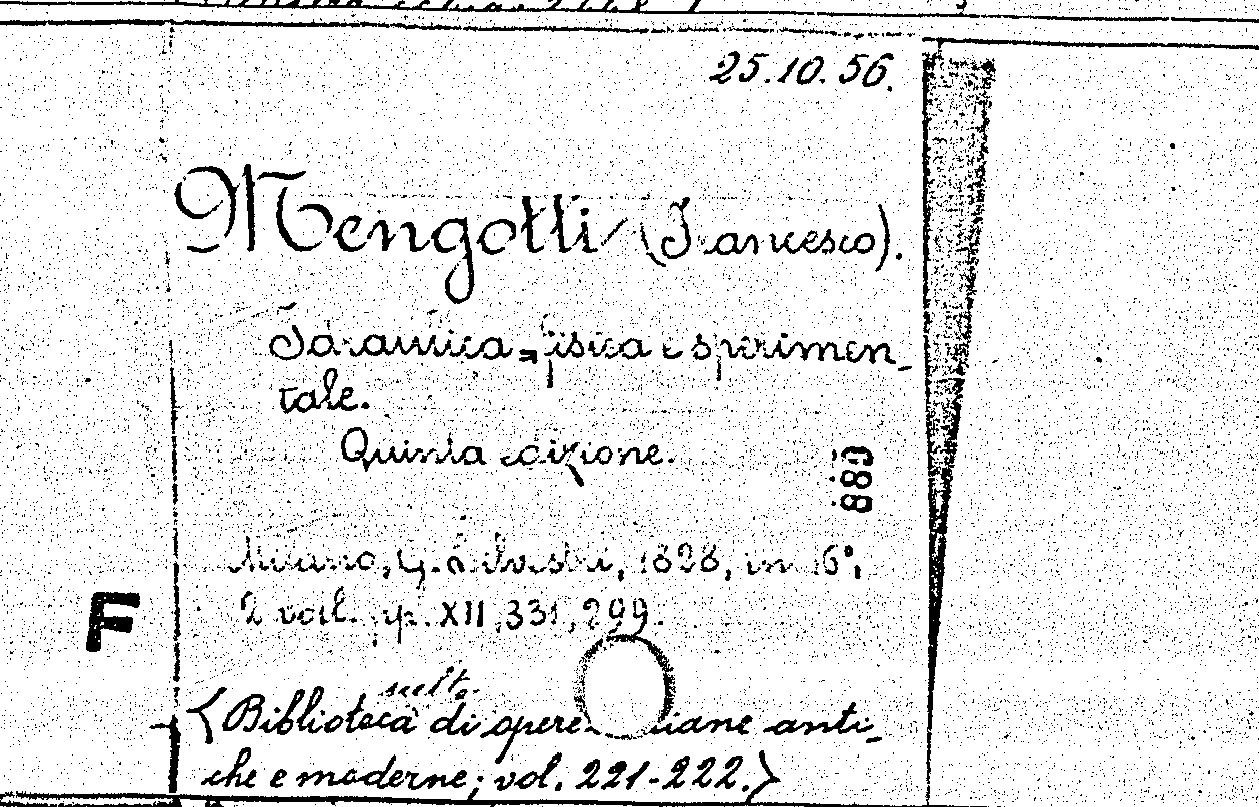 25.10.56.
Mengotti (Francesco).
Idraulica fisica e sperimen-
tale.
Quinta edizione.
889
Milano, G. Silvestri, 1828, in 16°,
2 vol. p. XII, 331, 299.
F
scelta
(Biblioteca di opere iane anti-
che e moderne; vol. 221-222.)